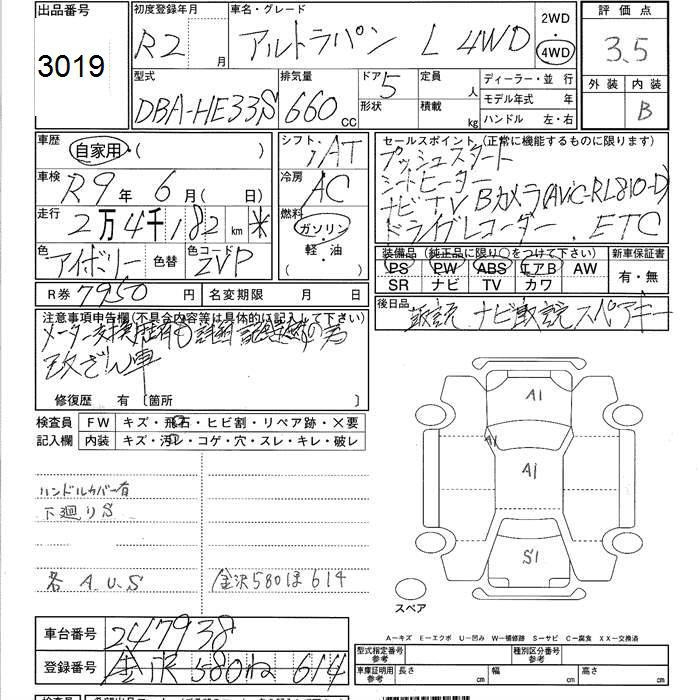 出品番号
3019
初度登録年月
R2 月
車名・グレード
アルトラパン L 4WD
2WD
4WD
評価点
3.5
外装 内装
B
型式
DBA-HE33S
排気量
660 cc
ドア 5
形状
定員 人
積載 kg
ディーラー・並 行
モデル年式 年
ハンドル 左・右
車歴
自家用・( )
車検
R9 年 6 月 ( 日)
走行
2万4千182 km *
色
アイボリー
色替
色コード
ZVP
シフト
AT
冷房
AC
燃料
ガソリン
軽・油
( )
セールスポイント (正常に機能するものに限ります)
プッシュスタート
シートヒーター
ナビ TV Bカメラ(AVIC-RL810-D)
ドライブレコーダー . ETC
装備品 (純正品に限り○をつけて下さい)
PS PW ABS エアB AW
SR ナビ TV カワ
新車保証書
有・無
R券 7950 円
名変期限 月 日
後日品
取説 ナビ取説 スペアキー
注意事項申告欄(不具合内容等は具体的に記入して下さい)
改ざん車
修復歴 有 〔箇所 〕
検査員
記入欄
FW キズ・飛石・ヒビ割・リペア跡・×要
内装 キズ・汚レ・コゲ・穴・スレ・キレ・破レ
ハンドルカバー有
下廻りS
各 A.U.S
金沢580ほ614
A1
A1
A1
S1
スペア
車台番号
247938
登録番号
金沢 580 ね 614
A−キズ E−エクボ U−凹み W−補修跡 S−サビ C−腐食 XX−交換済
型式指定番号
参考
種別区分番号
参考
車庫証明用
参考
長さ
幅
高さ